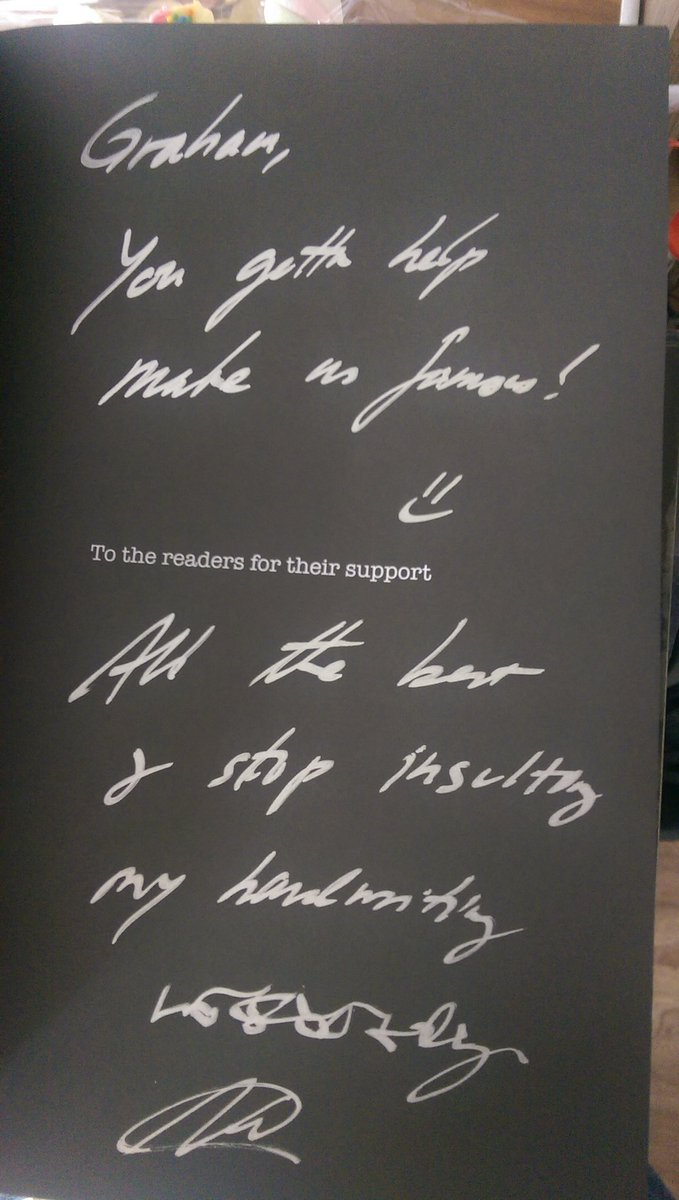 Graham,
You gotta help
make us famous!
To the readers for their support
All the best
& stop insulting
my handwriting